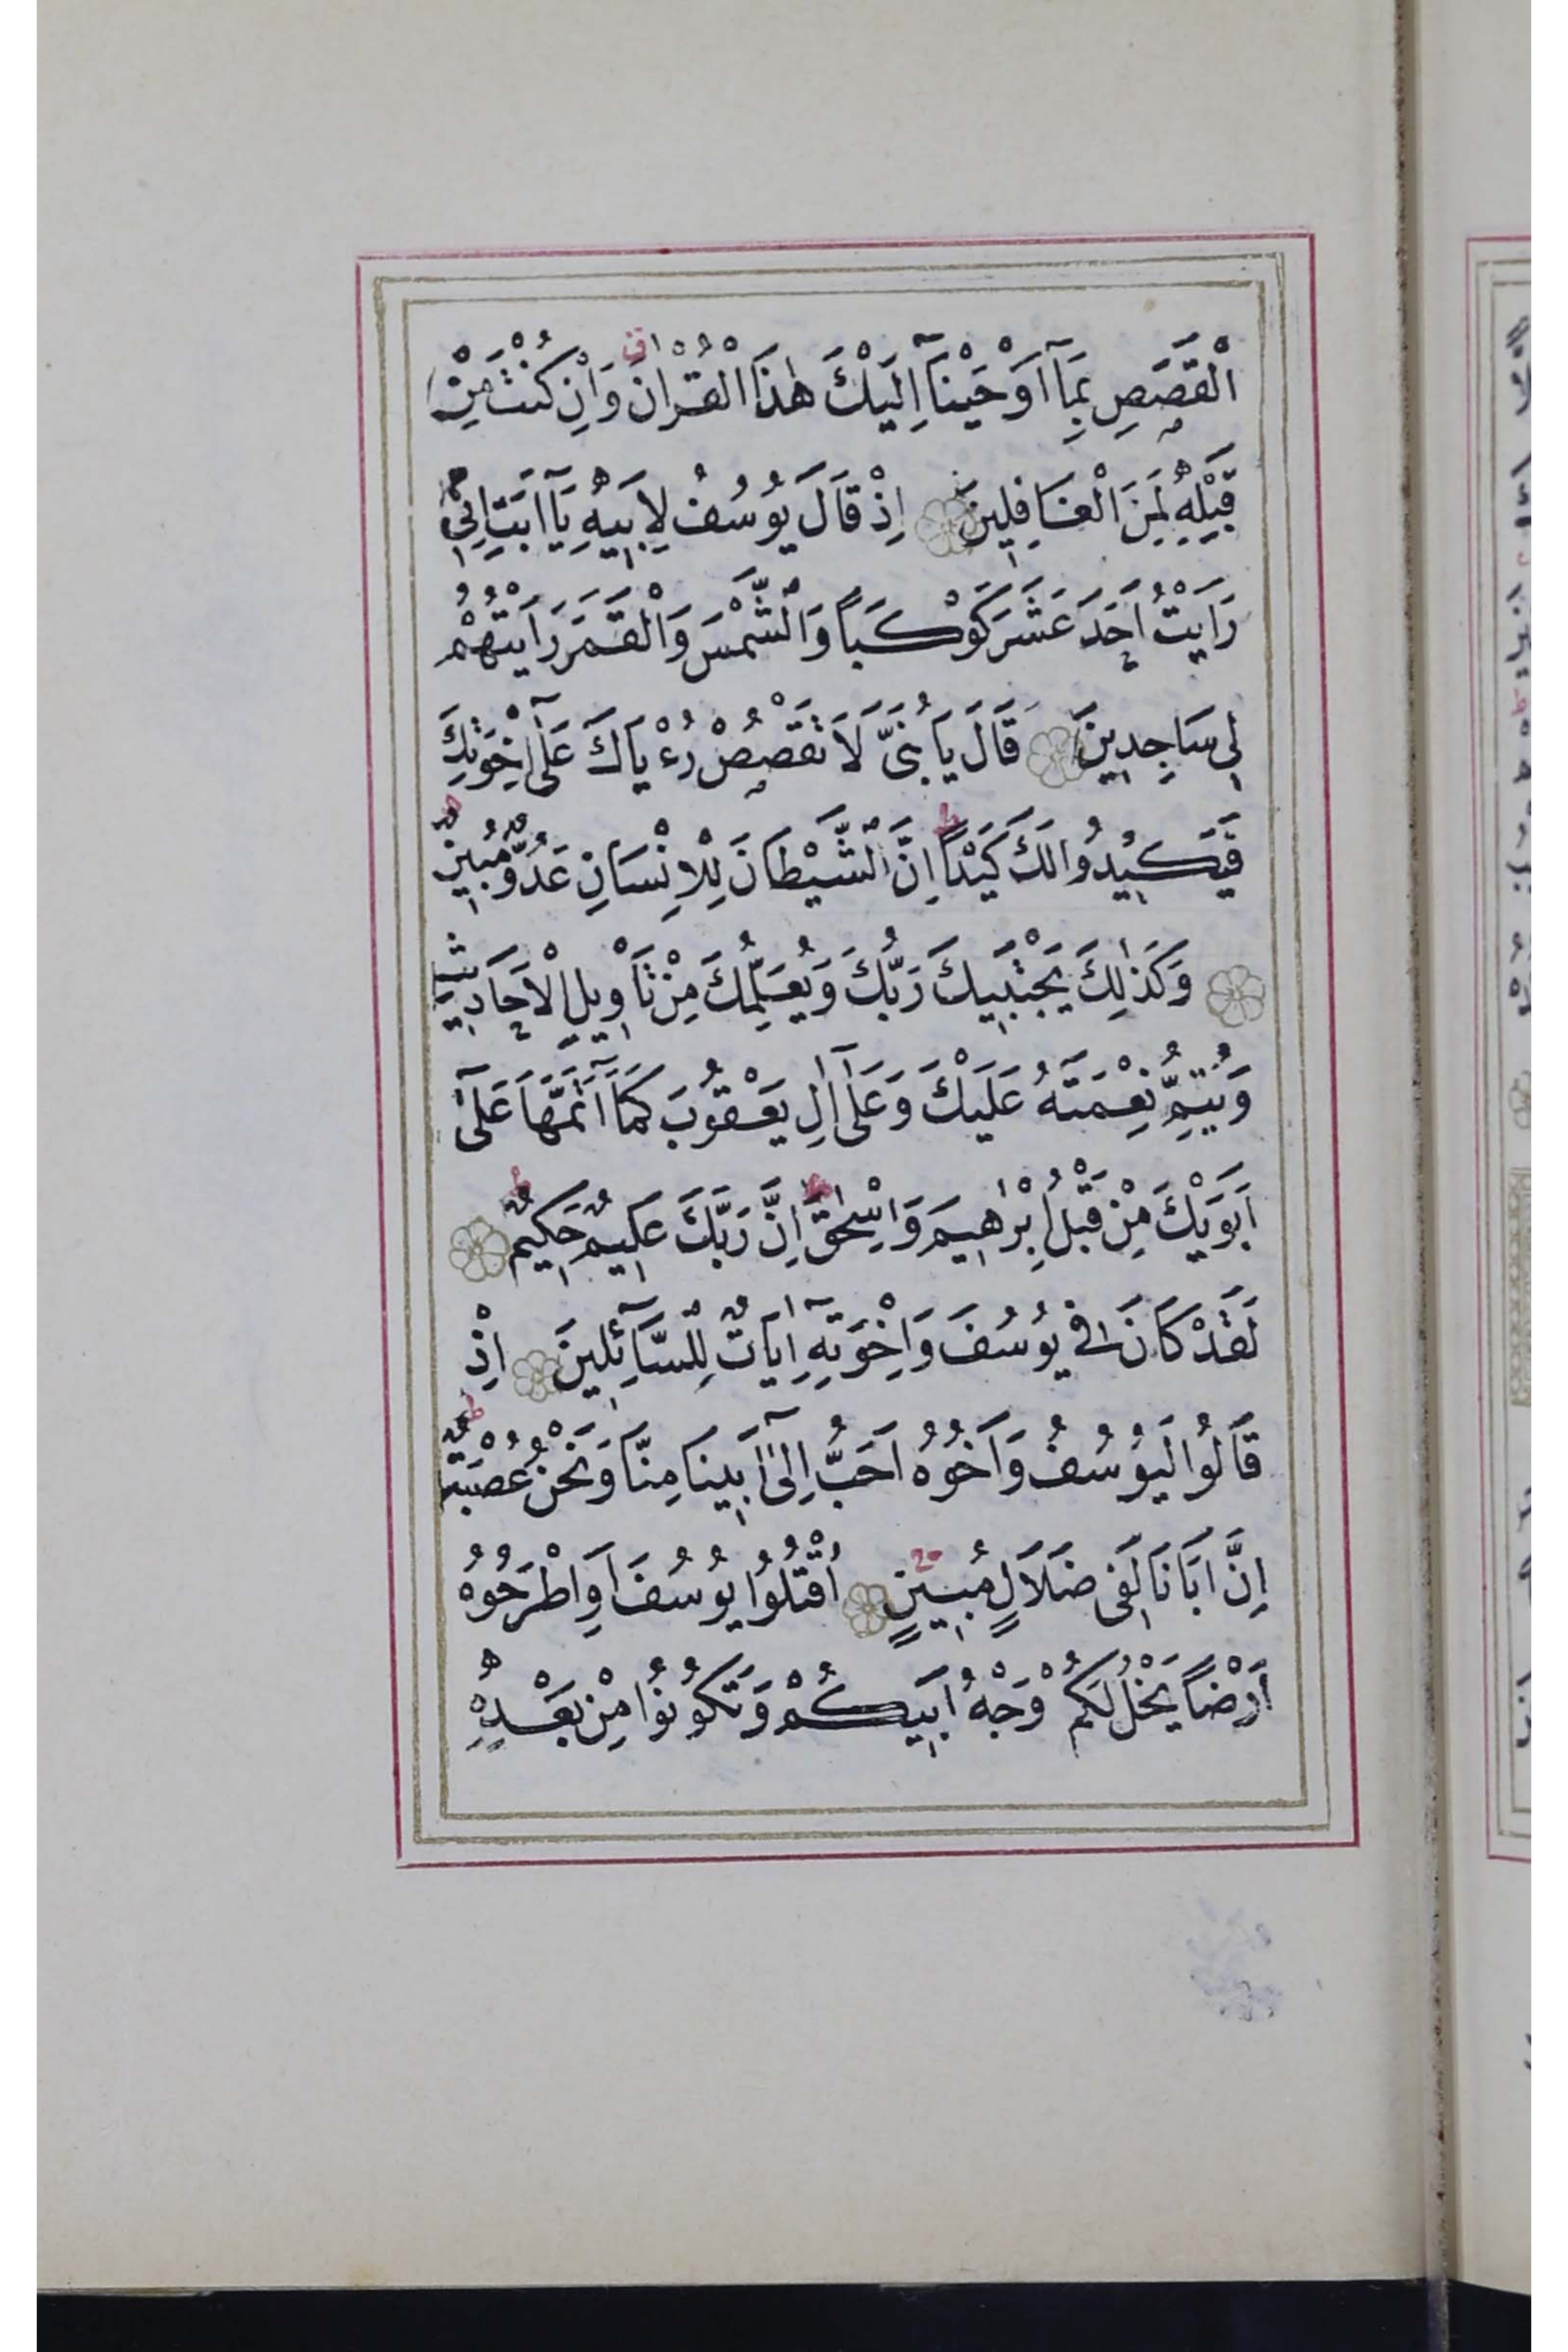 الْقَصَصِ بِمَآ اَوْحَيْنَآ اِلَيْكَ هٰذَا الْقُرْاٰنَ ق وَاِنْ كُنْتَ مِنْ
قَبْلِهِ لَمِنَ الْغَافِلِينَ اِذْ قَالَ يُوسُفُ لِاَبِيهِ يَآ اَبَتِ اِنِّي
رَاَيْتُ اَحَدَ عَشَرَ كَوْكَبًا وَالشَّمْسَ وَالْقَمَرَ رَاَيْتُهُمْ
لِي سَاجِدِينَ قَالَ يَا بُنَيَّ لَا تَقْصُصْ رُءْيَاكَ عَلٰٓى اِخْوَتِكَ
فَيَكِيدُوا لَكَ كَيْدًا ط اِنَّ الشَّيْطَانَ لِلْاِنْسَانِ عَدُوٌّ مُبِينٌ
وَكَذٰلِكَ يَجْتَبِيكَ رَبُّكَ وَيُعَلِّمُكَ مِنْ تَاْوِيلِ الْاَحَادِيثِ
وَيُتِمُّ نِعْمَتَهُ عَلَيْكَ وَعَلٰٓى اٰلِ يَعْقُوبَ كَمَآ اَتَمَّهَا عَلٰٓى
اَبَوَيْكَ مِنْ قَبْلُ اِبْرٰهِيمَ وَاِسْحٰقَ ط اِنَّ رَبَّكَ عَلِيمٌ حَكِيمٌ ط
لَقَدْ كَانَ فِي يُوسُفَ وَاِخْوَتِهِٓ اٰيَاتٌ لِلسَّآئِلِينَ اِذْ
قَالُوا لَيُوسُفُ وَاَخُوهُ اَحَبُّ اِلٰٓى اَبِينَا مِنَّا وَنَحْنُ عُصْبَةٌ ط
اِنَّ اَبَانَا لَفِي ضَلَالٍ مُبِينٍ اُقْتُلُوا يُوسُفَ اَوِ اطْرَحُوهُ
اَرْضًا يَخْلُ لَكُمْ وَجْهُ اَبِيكُمْ وَتَكُونُوا مِنْ بَعْدِهِ